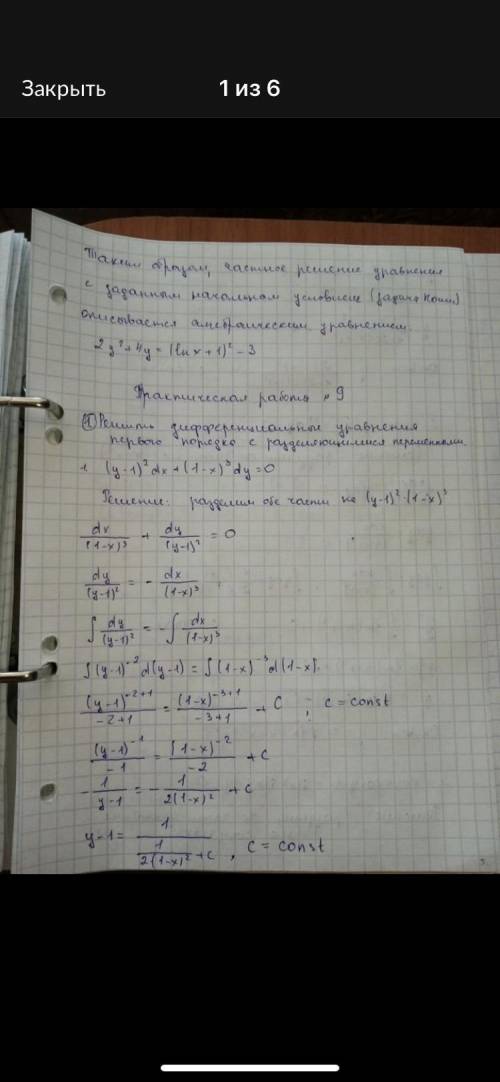 Закрыть
1 из 6
Таким образом, частное решение уравнения
с заданным начальном условием (задача Коши)
описывается алгебраическим уравнением.
2y² + 4y = (ln x + 1)² - 3
Практическая работа № 9
1 Решить дифференциальные уравнения
первого порядка с разделяющимися переменными.
1. (y-1)² dx + (1-x)³ dy = 0
Решение: разделим обе части на (y-1)² · (1-x)³
dx/(1-x)³ + dy/(y-1)² = 0
dy/(y-1)² = - dx/(1-x)³
∫ dy/(y-1)² = -∫ dx/(1-x)³
∫ (y-1)⁻² d(y-1) = ∫ (1-x)⁻³ d(1-x).
(y-1)⁻²⁺¹/(-2+1) = (1-x)⁻³⁺¹/(-3+1) + C ; c = const
(y-1)⁻¹/(-1) = (1-x)⁻²/(-2) + C
- 1/(y-1) = - 1/(2(1-x)²) + C
y-1 = 1/(1/(2(1-x)²) + C) , C = const